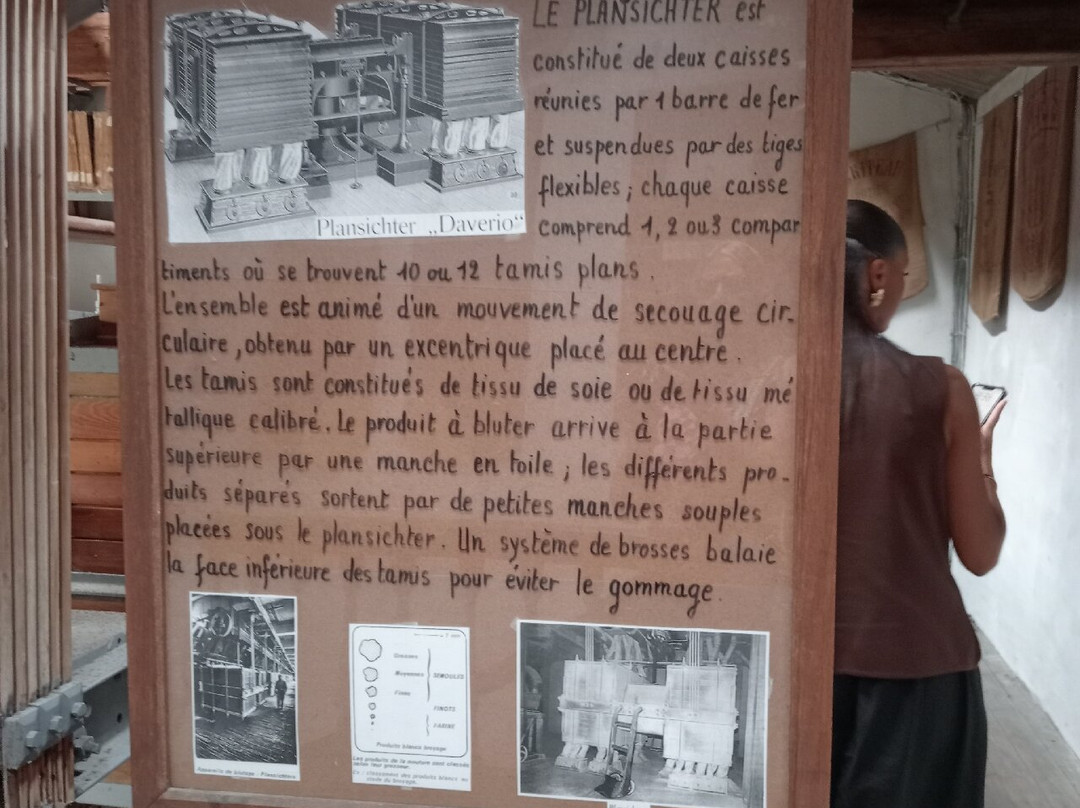 LE PLANSICHTER est
constitué de deux caisses
réunies par 1 barre de fer
et suspendues par des tiges
flexibles ; chaque caisse
comprend 1, 2 ou 3 compar
Plansichter „Daverio“
timents où se trouvent 10 ou 12 tamis plans .
L'ensemble est animé d'un mouvement de secouage cir-
culaire , obtenu par un excentrique placé au centre .
Les tamis sont constitués de tissu de soie ou de tissu mé
tallique calibré . Le produit à bluter arrive à la partie
supérieure par une manche en toile ; les différents pro-
duits séparés sortent par de petites manches souples
placées sous le plansichter . Un système de brosses balaie
la face inférieure des tamis pour éviter le gommage .
Grosses
Moyennes
SEMOULES
Fines
FINOTS
FARINE
Produits blancs broyage
Les produits de la mouture sont classés
selon leur grosseur.
Ici : classement des produits blancs au
stade du broyage.
Appareils de blutage : Plansichters